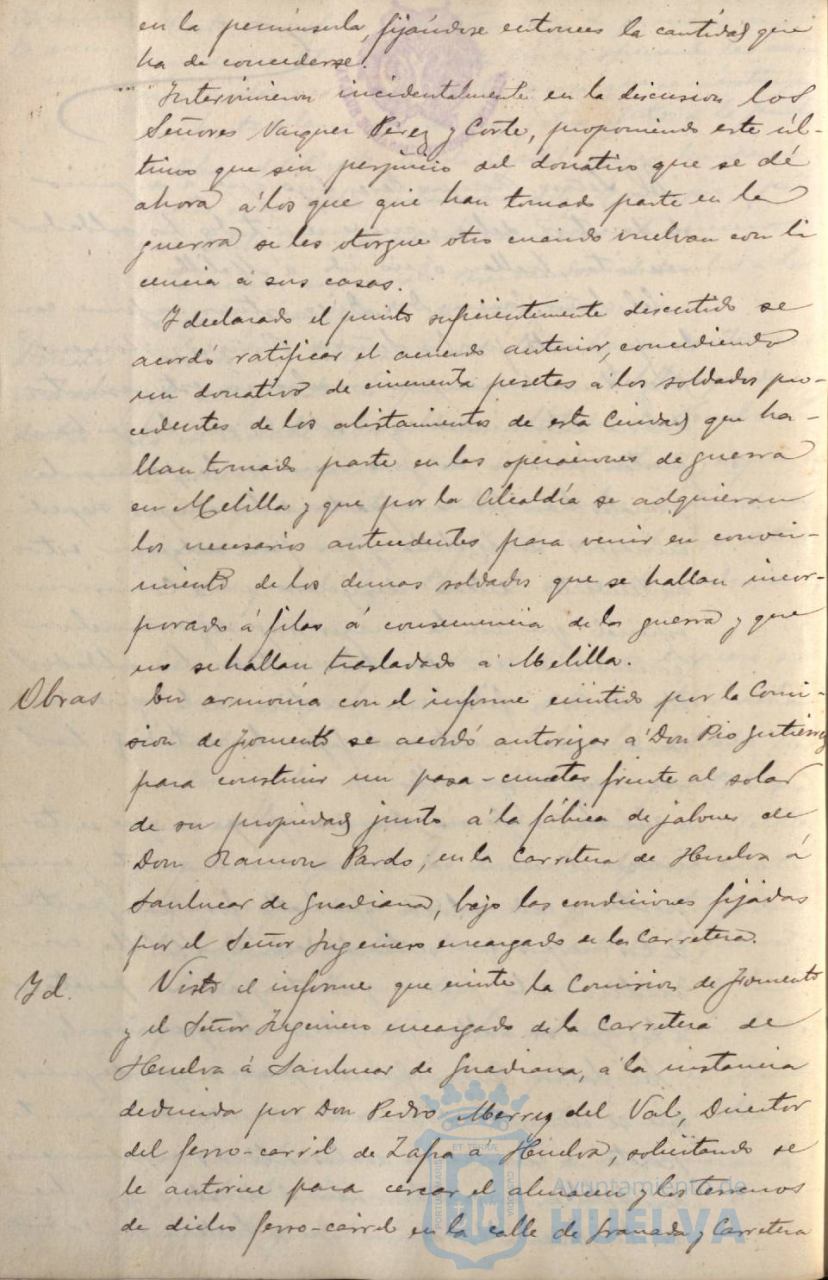 en la península, fijándose entonces la cantidad que
ha de concederse.
Intervinieron incidentalmente en la discusion los
Señores Vazquez Perez y Corte, proponiendo este úl-
timo que sin perjuicio del donativo que se dé
ahora á los que que han tomado parte en la
guerra se les otorgue otro cuando vuelvan con li
cencia á sus casas.
Y declarado el punto suficientemente discutido se
acordó ratificar el acuerdo anterior, concediendo
un donativo de cincuenta pesetas á los soldados pro-
cedentes de los alistamientos de esta Ciudad que ha-
llan tomado parte en las operaciones de guerra
en Melilla y que por la Alcaldía se adquieran
los necesarios antecedentes para venir en conoci-
miento de los demas soldados que se hallan incor-
porado á filas á consecuencia de la guerra y que
no se hallan trasladado á Melilla.
Obras
En armonía con el informe emitido por la Comi-
sion de Fomento se acordó autorizar á Don Pio Gutierrez
para construir un pasa-cunetas frente al solar
de su propiedad junto á la fábrica de jabones de
Don Ramon Pardo, en la Carretera de Huelva á
Sanlucar de Guadiana, bajo las condiciones fijadas
por el Señor Ingeniero encargado de la Carretera.
Id.
Visto el informe que emite la Comision de Fomento
y el Señor Ingeniero encargado de la Carretera de
Huelva á Sanlucar de Guadiana, á la instancia
deducida por Don Pedro Merry del Val, Director
del ferro-carril de Zafra á Huelva, solicitando se
le autorice para cercar el almacen y los terrenos
de dicho ferro-carril en la calle de Granada y Carretera
Ayuntamiento de
HUELVA